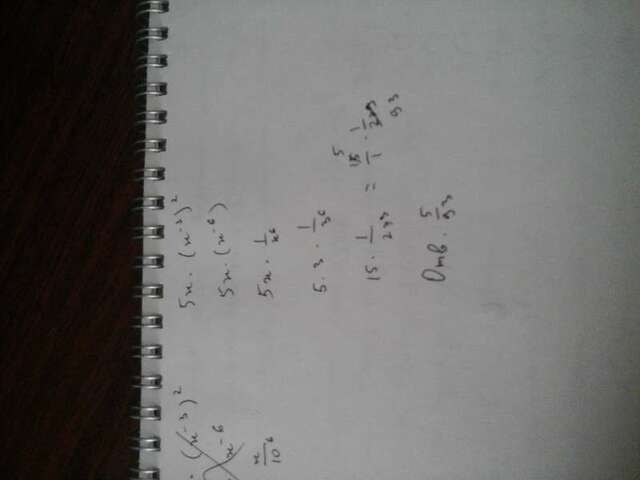 · (x⁻³)²
x⁻⁶
x/10⁶
5x · (x⁻³)²
5x · (x⁻⁶)
5x · 1/x⁶
5 · 3 · 1/3⁶
15 · 1/293 = 15/1 · 1/293
5
93
Отв. 5/93